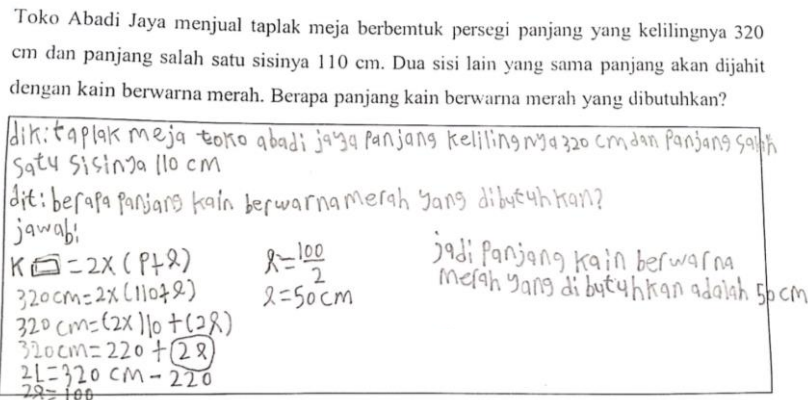 Toko Abadi Jaya menjual taplak meja berbemtuk persegi panjang yang kelilingnya 320
cm dan panjang salah satu sisinya 110 cm. Dua sisi lain yang sama panjang akan dijahit
dengan kain berwarna merah. Berapa panjang kain berwarna merah yang dibutuhkan?
dik: taplak meja toko abadi jaya panjang kelilingnya 320 cm dan panjang salah
satu sisinya 110 cm
dit: berapa panjang kain berwarna merah yang dibutuhkan?
jawab:
K = 2x (P+l)
320 cm = 2x (110+l)
320 cm = (2x110 + (2l)
320 cm = 220 + (2l)
2L = 320 cm - 220
2l = 100
l = 100/2
l = 50 cm
jadi panjang kain berwarna
merah yang dibutuhkan adalah 50 cm